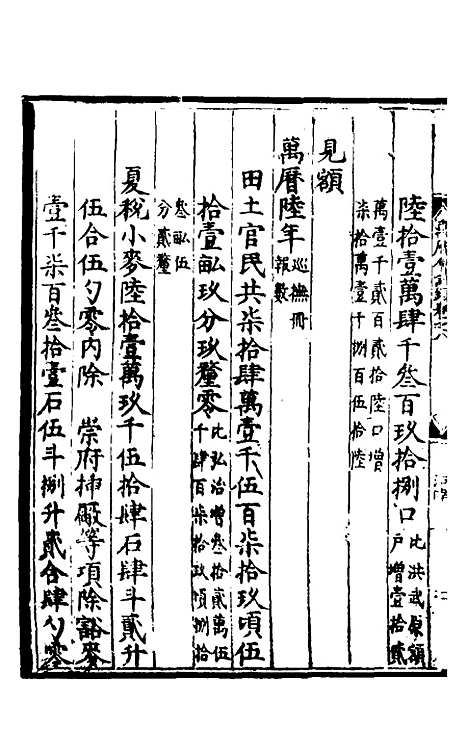 陸拾壹萬肆千叁百玖拾捌口比洪武原額戶增壹拾貳
萬壹千貳百貳拾陸口增
柒拾萬壹千捌百伍拾陸
見額
萬曆陸年巡撫冊報數
田土官民共柒拾肆萬壹千伍百柒拾玖頃伍
拾壹畝玖分玖釐零比弘治增叁拾貳萬伍千肆百柒拾玖頃捌拾
叁畝伍分貳釐
夏稅小麥陸拾壹萬玖千伍拾肆石肆斗貳升
伍合伍勺零內除 崇府挿廠等項除豁麥
壹千柒百叁拾壹石伍斗捌升貳合肆勺零